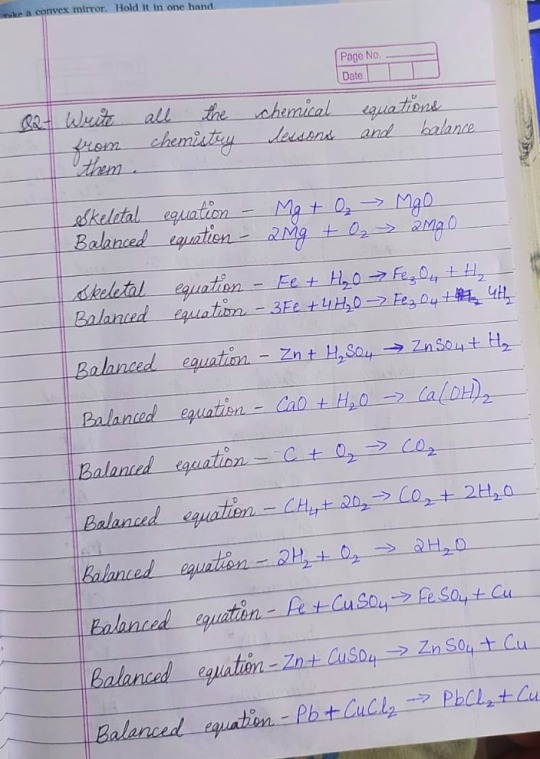 take a convex mirror. Hold it in one hand
Page No.
Date
Q2- Write all the chemical equations
from chemistry lessons and balance
them.
Skeletal equation - Mg + O₂ → MgO
Balanced equation - 2Mg + O₂ → 2MgO
Skeletal equation - Fe + H₂O → Fe₃O₄ + H₂
Balanced equation - 3Fe + 4H₂O → Fe₃O₄ + 4H₂
Balanced equation - Zn + H₂SO₄ → ZnSO₄ + H₂
Balanced equation - CaO + H₂O → Ca(OH)₂
Balanced equation - C + O₂ → CO₂
Balanced equation - CH₄ + 2O₂ → CO₂ + 2H₂O
Balanced equation - 2H₂ + O₂ → 2H₂O
Balanced equation - Fe + CuSO₄ → FeSO₄ + Cu
Balanced equation - Zn + CuSO₄ → ZnSO₄ + Cu
Balanced equation - Pb + CuCl₂ → PbCl₂ + Cu